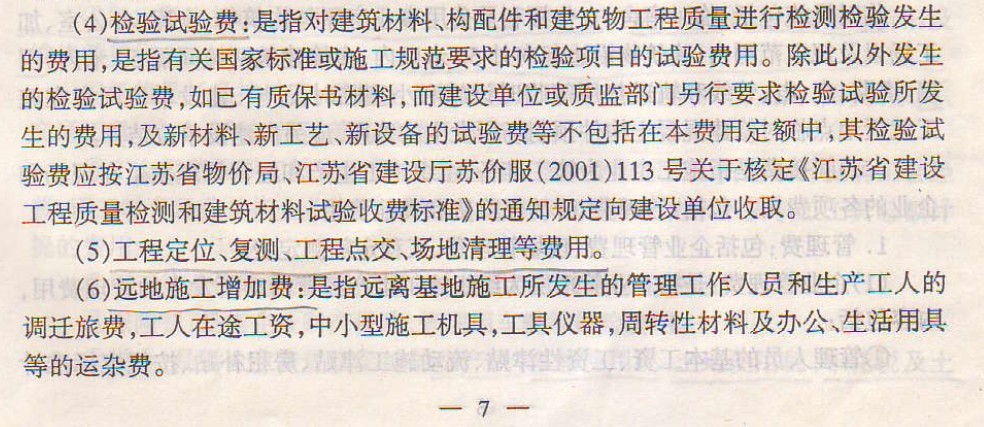 (4)检验试验费:是指对建筑材料、构配件和建筑物工程质量进行检测检验发生
的费用,是指有关国家标准或施工规范要求的检验项目的试验费用。除此以外发生
的检验试验费,如已有质保书材料,而建设单位或质监部门另行要求检验试验所发
生的费用,及新材料、新工艺、新设备的试验费等不包括在本费用定额中,其检验试
验费应按江苏省物价局、江苏省建设厅苏价服(2001)113号关于核定《江苏省建设
工程质量检测和建筑材料试验收费标准》的通知规定向建设单位收取。
(5)工程定位、复测、工程点交、场地清理等费用。
(6)远地施工增加费:是指远离基地施工所发生的管理工作人员和生产工人的
调迁旅费,工人在途工资,中小型施工机具,工具仪器,周转性材料及办公、生活用具
等的运杂费。
— 7 —